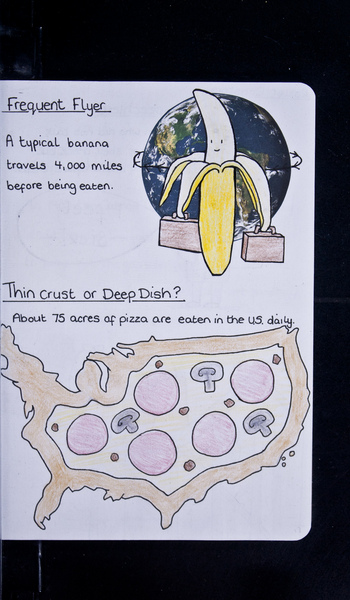 Frequent Flyer
A typical banana
travels 4,000 miles
before being eaten.
Thin crust or Deep Dish?
About 75 acres of pizza are eaten in the U.S. daily.